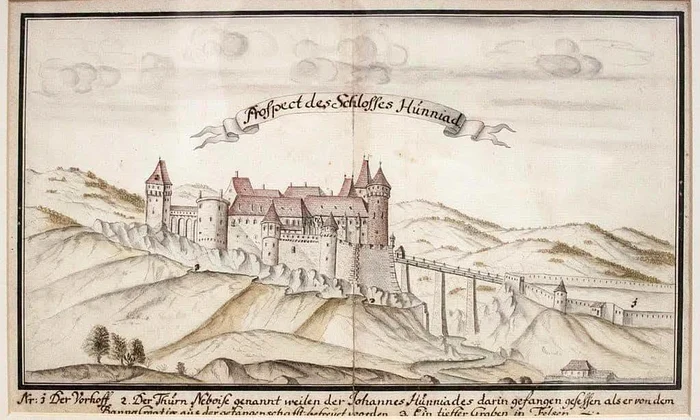 Prospect des Schlosses Húnniad
3
Nr: 1 Der Vorhoff, 2. Der Thúrn Neboise genannt weilen der Johannes Húnniades darin gefangen gesessen als er von dem
Banno Croatiæ aus der gefangenschafft befreyt worden 3 Ein tieffer Graben in Felsen